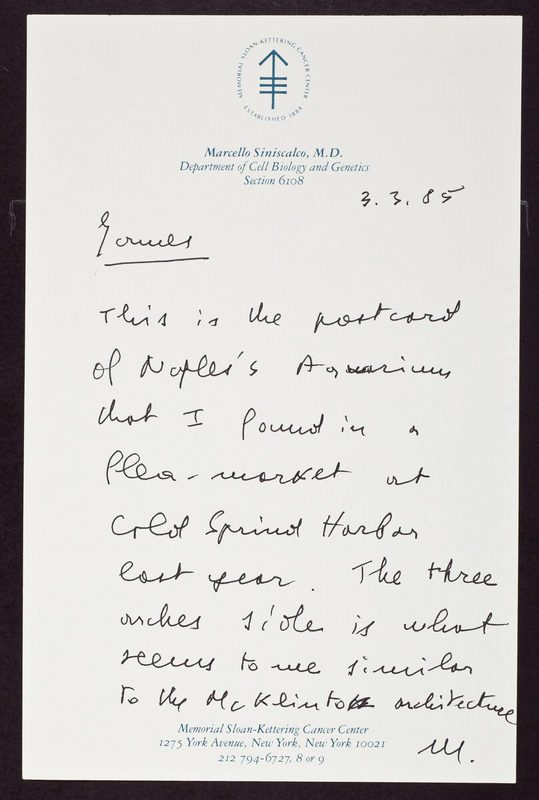 MEMORIAL SLOAN-KETTERING CANCER CENTER
ESTABLISHED 1884
Marcello Siniscalco, M.D.
Department of Cell Biology and Genetics
Section 6108
3.3.85
James
This is the postcard
of Naples's Aquarium
that I found in a
flea-market at
Cold Sprind Harbor
last year. The three
arches side is what
seems to me similar
to the McKlintok architecture
M.
Memorial Sloan-Kettering Cancer Center
1275 York Avenue, New York, New York 10021
212 794-6727, 8 or 9